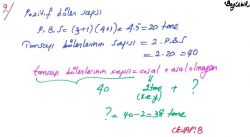 9)
Pozitif bölen sayısı
P.B.S = (3+1)(4+1) = 4.5 = 20 tane
Tamsayı bölenlerinin sayısı = 2.P.B.S
= 2.20 = 40
tamsayı bölenlerinin sayısı = asal + asal olmayan
40 2 tane + ?
(x ve y)
? = 40-2 = 38 tane
CEVAP: B